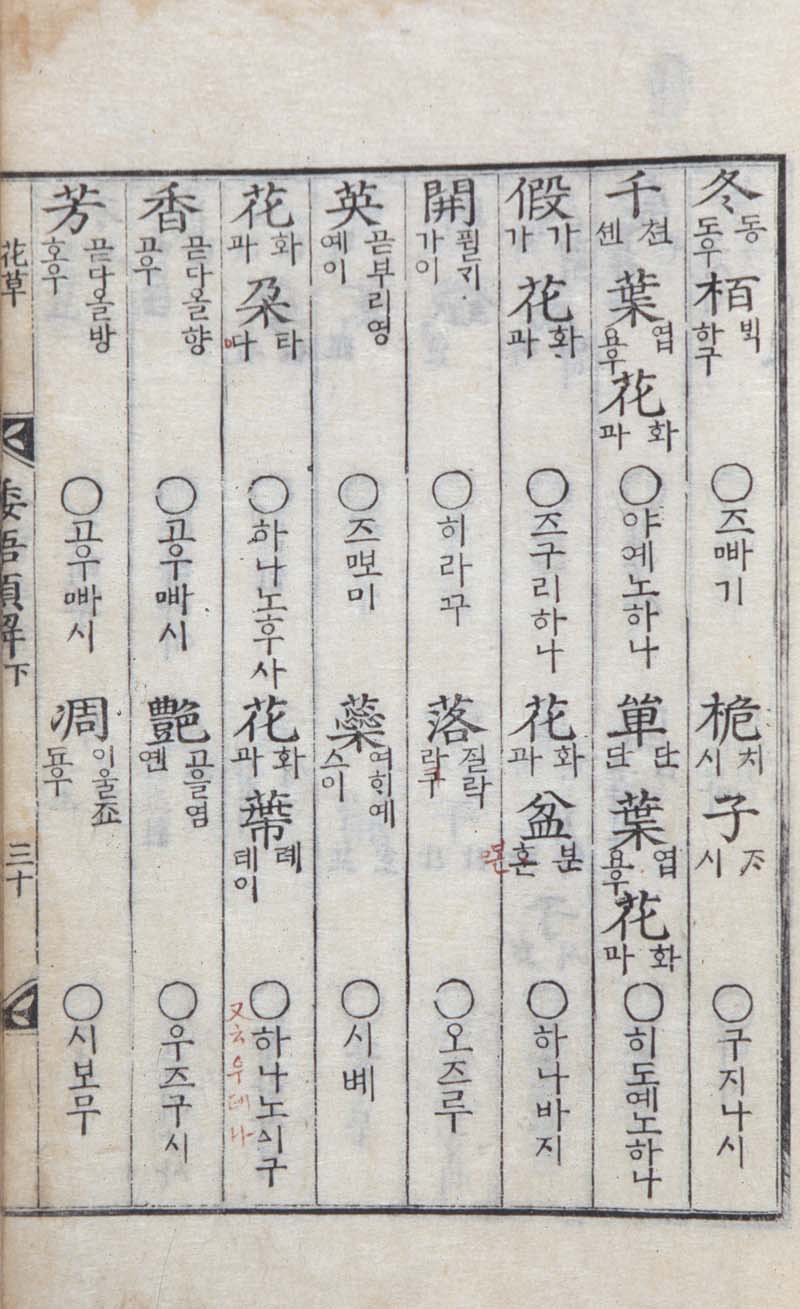 冬 동 도우 栢 ᄇᆡᆨ 하구 ○즈ᄲᅡ기 梔 치 시 子 ᄌᆞ 시 ○구지나시
千 쳔 센 葉 엽 요우 花 화 과 ○야예노하나 單 단 단 葉 엽 요우 花 화 과 ○히도예노하나
假 가 가 花 화 과 ○즈구리하나 花 화 과 盆 분 혼 ○하나바지
開 필ᄀᆡ 가이 ○히라꾸 落 질락 라구 ○오즈루
英 곧부리영 예이 ○즈ᄲᅩ미 蘂 여ᄒᆡ예 스이 ○시볘
花 화 과 朶 타 따 ○하나노후사 花 화 과 蔕 톄 테이 ○하나노ᅀᅵ구 又云우데나
香 곧다올향 고우 ○고우ᄲᅡ시 艶 고을염 옌 ○우즈구시
芳 곧다올방 호우 ○고우ᄲᅡ시 凋 이울죠 됴우 ○시보무
花草 倭語類解下 三十